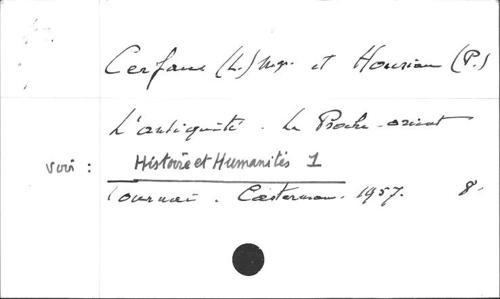 Cerfaux (L.) Mgr. et Houssiau (P.)
L'antiquité. Le Proche-orient
Voir : Histoire et Humanités 1
Tournai. Casterman. 1957. 8°